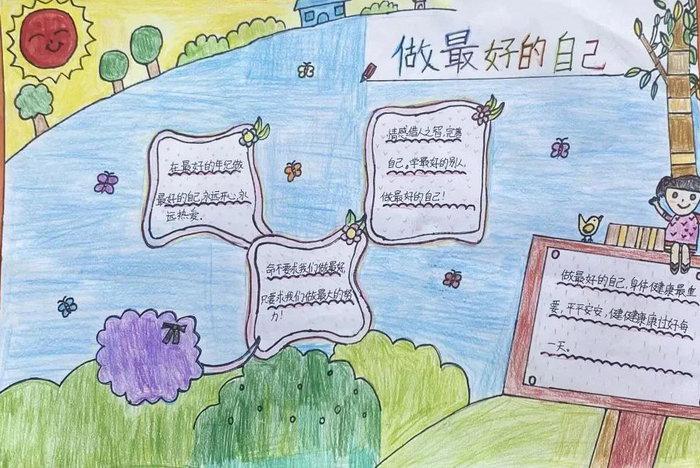 做最好的自己
在最好的年纪做
最好的自己,永远开心,永
远热爱.
情感借人之智,完善
自己。学最好的别人,
做最好的自己!
命不要求我们做最好,
只要求我们做最大的努
力!
做最好的自己,身体健康最重
要,平平安安,健健康康过好每
一天。